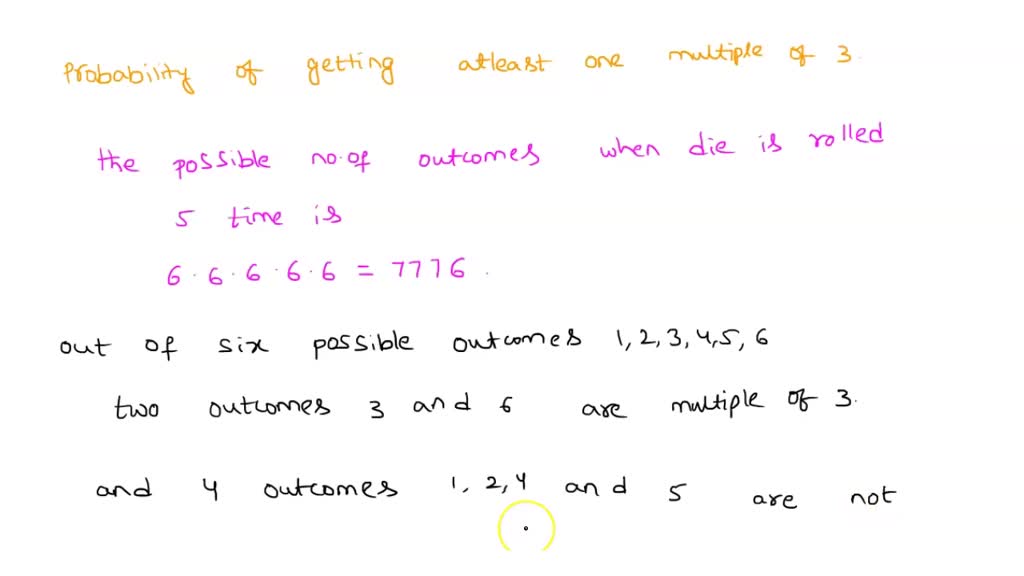 Probability of getting atleast one multiple of 3.
the possible no.of outcomes when die is rolled
5 time is
6.6.6.6.6 = 7776.
out of six possible outcomes 1,2,3,4,5,6
two outcomes 3 and 6 are multiple of 3.
and 4 outcomes 1, 2, 4 and 5 are not